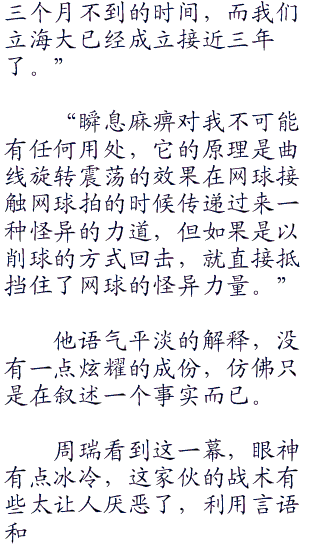 三个月不到的时间，而我们
立海大已经成立接近三年
了。”
“瞬息麻痹对我不可能
有任何用处，它的原理是曲
线旋转震荡的效果在网球接
触网球拍的时候传递过来一
种怪异的力道，但如果是以
削球的方式回击，就直接抵
挡住了网球的怪异力量。”
他语气平淡的解释，没
有一点炫耀的成份，仿佛只
是在叙述一个事实而已。
周瑞看到这一幕，眼神
有点冰冷，这家伙的战术有
些太让人厌恶了，利用言语
和